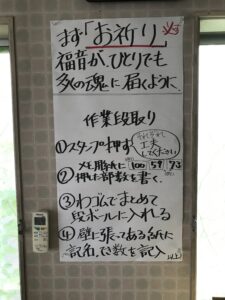 まず「お祈り」必ず
福音が、ひとりでも
多くの魂に届くように
作業段取り
①スタンプ押す
それぞれ
工夫
してください
②メモ用紙に 100 59 73
押した部数を書く。
③わゴムでまとめて
段ボールに入れる
④壁に張ってある紙に
記名、でき数を記入
以上